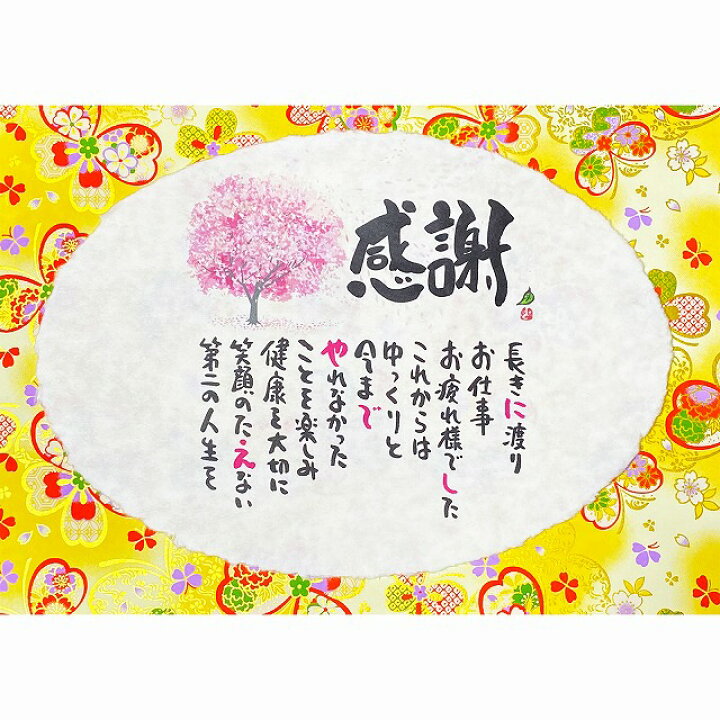 感謝
長きに渡り
お仕事
お疲れ様でした
これからは
ゆっくりと
今まで
やれなかった
ことを楽しみ
健康を大切に
笑顔のたえない
第二の人生を